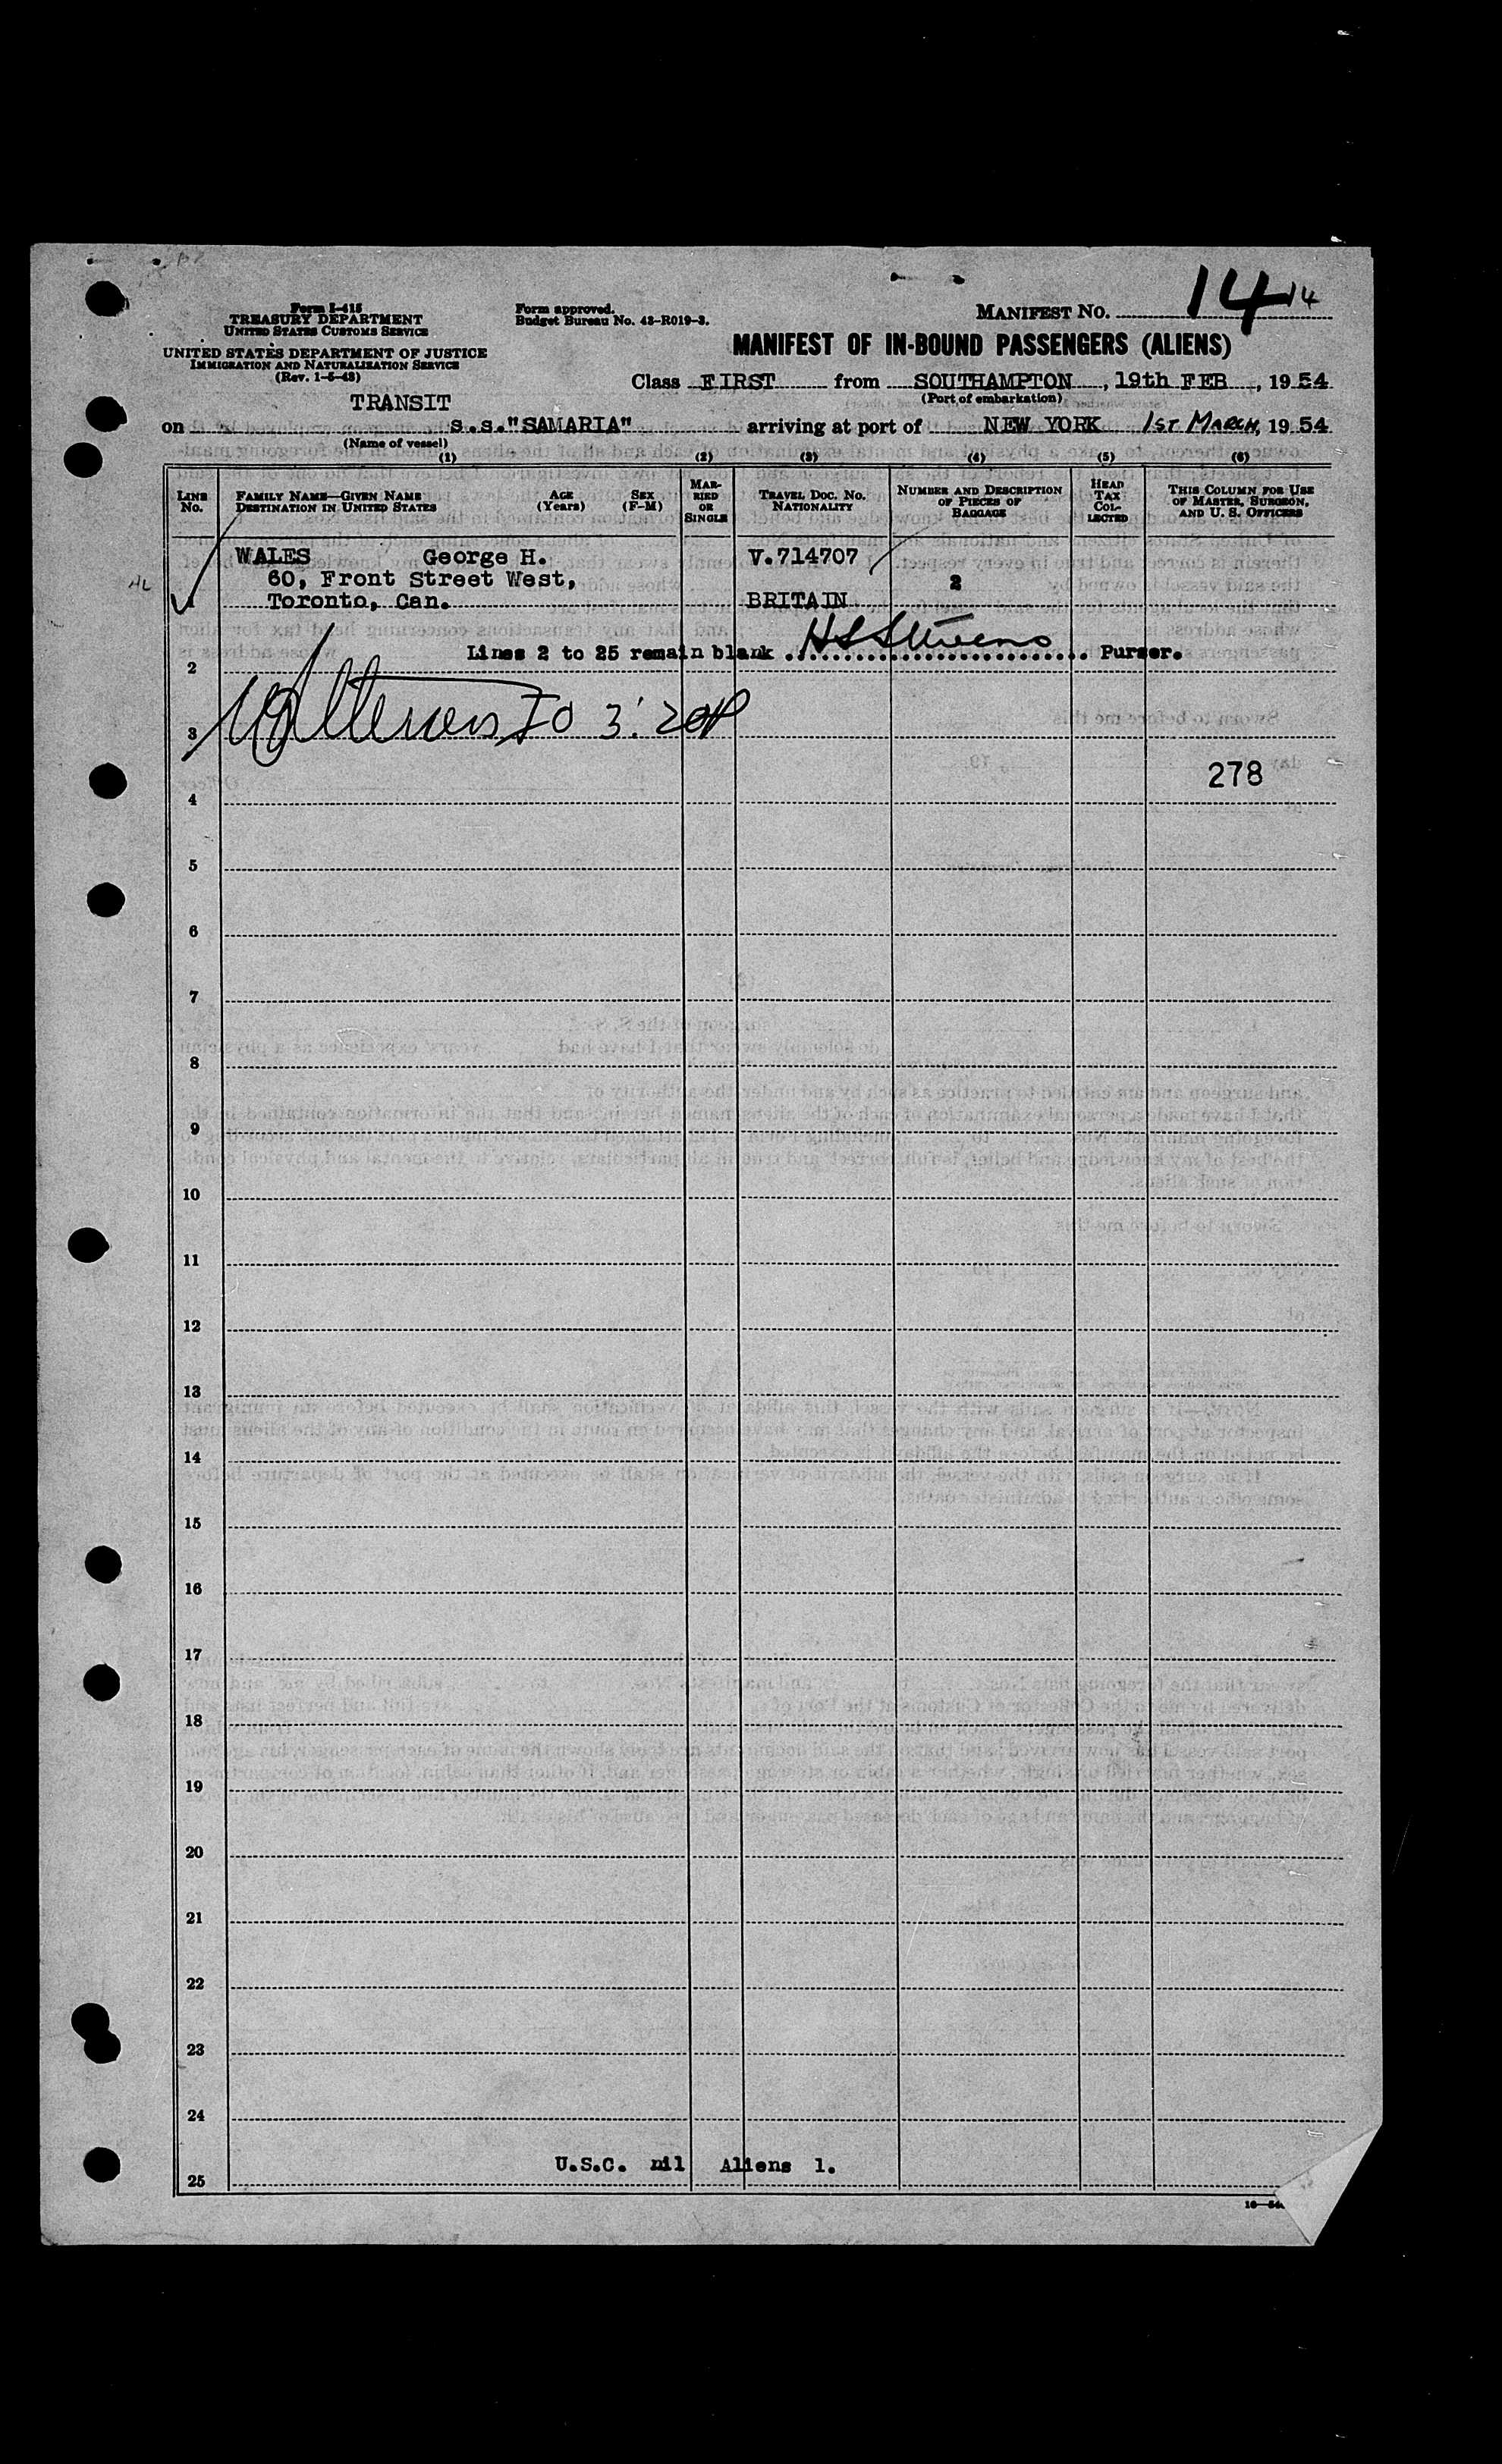 14 14
Form I-415
TREASURY DEPARTMENT
UNITED STATES CUSTOMS SERVICE
UNITED STATES DEPARTMENT OF JUSTICE
IMMIGRATION AND NATURALIZATION SERVICE
(Rev. 1-5-43)
Form approved.
Budget Bureau No. 43-R019-3.
MANIFEST NO.
MANIFEST OF IN-BOUND PASSENGERS (ALIENS)
Class FIRST from SOUTHAMPTON, 19th FEB, 1954
(Port of embarkation)
TRANSIT
on S.S."SAMARIA" arriving at port of NEW YORK 1ST MARCH, 1954
(Name of vessel)
(1) (2) (3) (4) (5) (6)
LINE No. FAMILY NAME—GIVEN NAME DESTINATION IN UNITED STATES AGE (Years) SEX (F-M) MARRIED OR SINGLE TRAVEL DOC. NO. NATIONALITY NUMBER AND DESCRIPTION OF PIECES OF BAGGAGE HEAD TAX COLLECTED THIS COLUMN FOR USE OF MASTER, SURGEON, AND U. S. OFFICERS
WALES George H. V.714707
60, Front Street West, 2
1 Toronto, Can. BRITAIN
Lines 2 to 25 remain blank Purser.
2
3
278
4
5
6
7
8
9
10
11
12
13
14
15
16
17
18
19
20
21
22
23
24
U.S.C. nil Aliens 1.
25